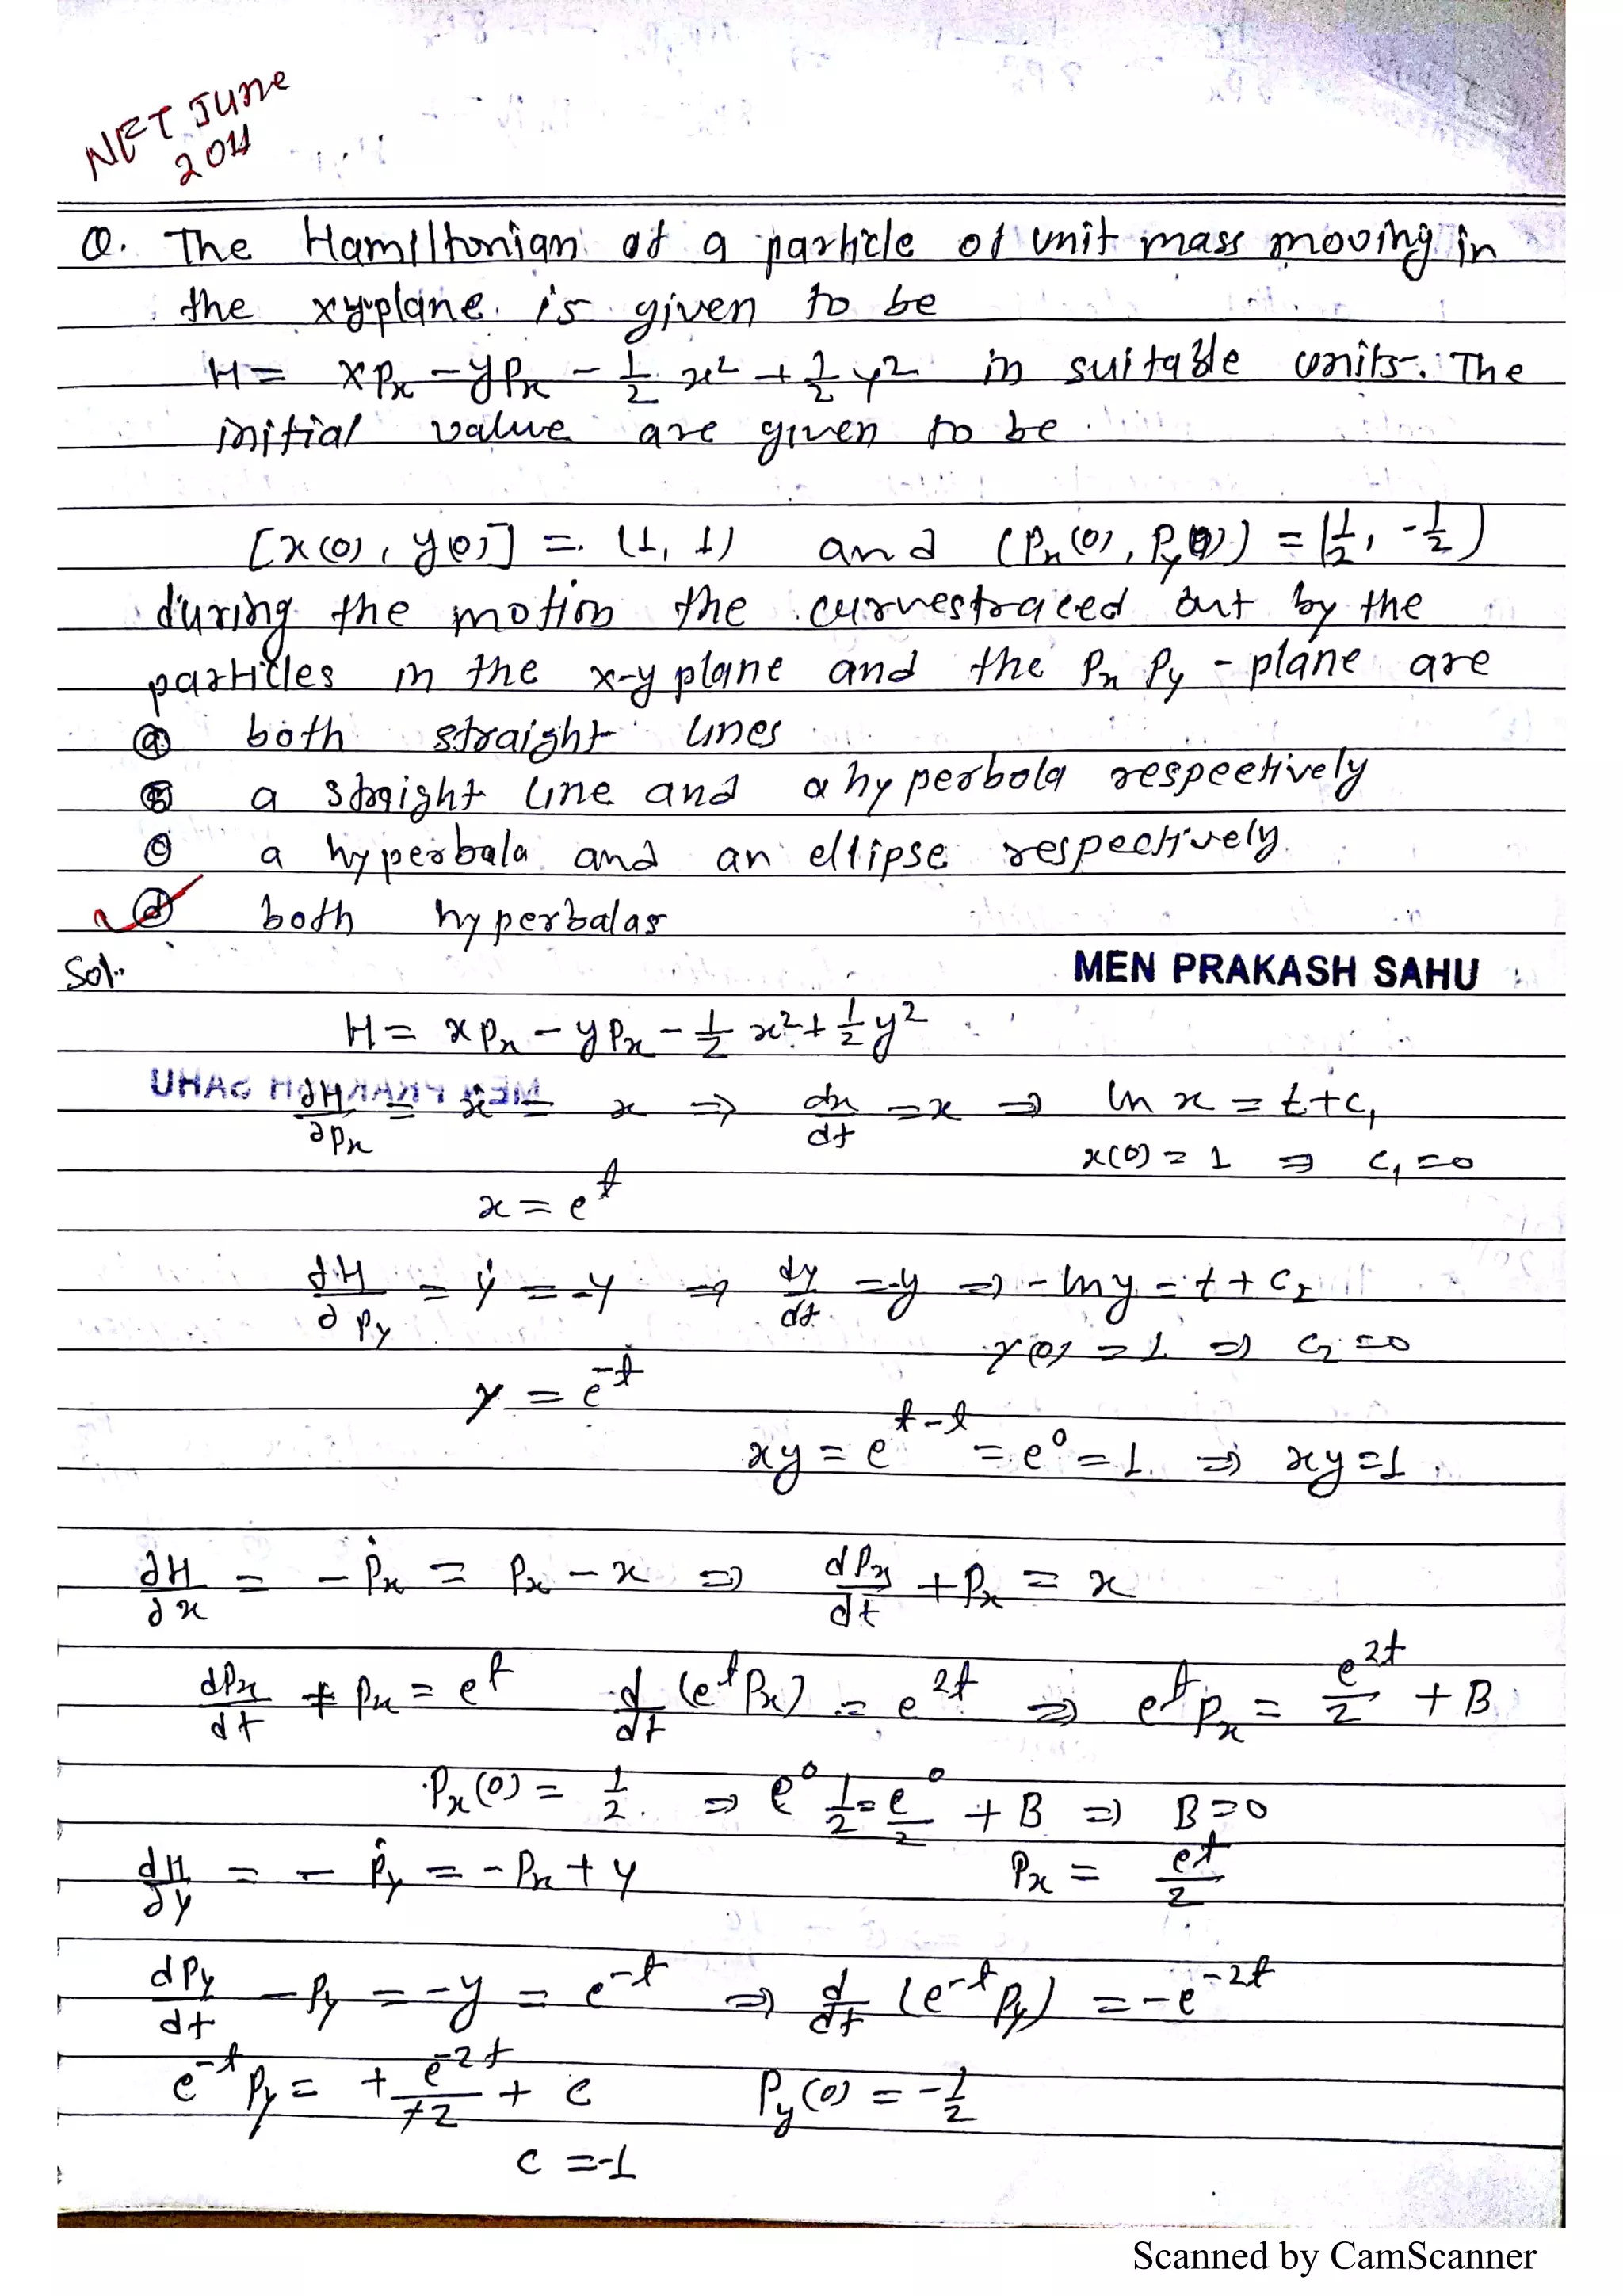 NET June
2011
Q. The Hamiltonian of a particle of unit mass moving in
the xy plane. is given to be
H = xPx - yPx - 1/2 x² + 1/2 y² in suitable units. The
initial value are given to be.
[x(0), y(0)] = (1, 1) and (Px(0), Py(0)) = (1/2, -1/2)
during the motion the curvestraced out by the
particles in the x-y plane and the Px Py - plane are
(a) both straight lines
(b) a straight line and a hyperbola respectively
(c) a hyperbola and an ellipse respectively.
(d) both hyperbalas
Sol.
MEN PRAKASH SAHU
H = xPx - yPx - 1/2 x² + 1/2 y²
∂H/∂Px = ẋ = x ⇒ dx/dt = x ⇒ ln x = t + c₁
x(0) = 1 ⇒ c₁ = 0
x = e^t
∂H/∂Py = ẏ = -y ⇒ dy/dt = -y ⇒ -ln y = t + c₂
y(0) = 1 ⇒ c₂ = 0
y = e^-t
xy = e^(t-t) = e⁰ = 1. ⇒ xy = 1.
∂H/∂x = -Ṗx = Px - x ⇒ dPx/dt + Px = x
dPx/dt + Px = e^t d/dt (e^t Px) = e^2t ⇒ e^t Px = e^2t/2 + B
Px(0) = 1/2. ⇒ e⁰ 1/2 = e⁰/2 + B ⇒ B = 0
∂H/∂y = -Ṗy = -Px + y Px = e^t/2
dPy/dt - Py = -y = e^-t ⇒ d/dt (e^-t Py) = -e^-2t
e^-t Py = + e^-2t/+2 + c Py(0) = -1/2
c = -1
Scanned by CamScanner